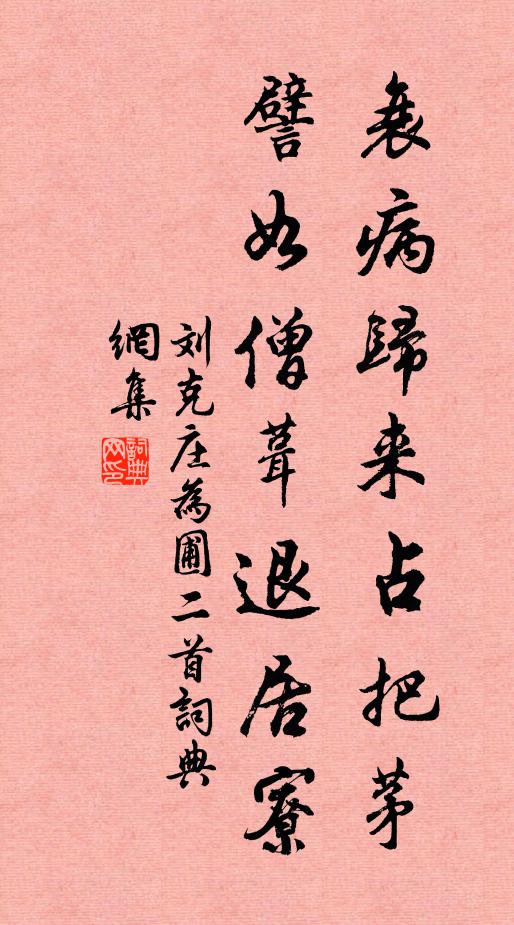 衰病歸来占把茅
譬如僧葺退居寮
刘克庄為圃二首詞典
網集
詞典
网印